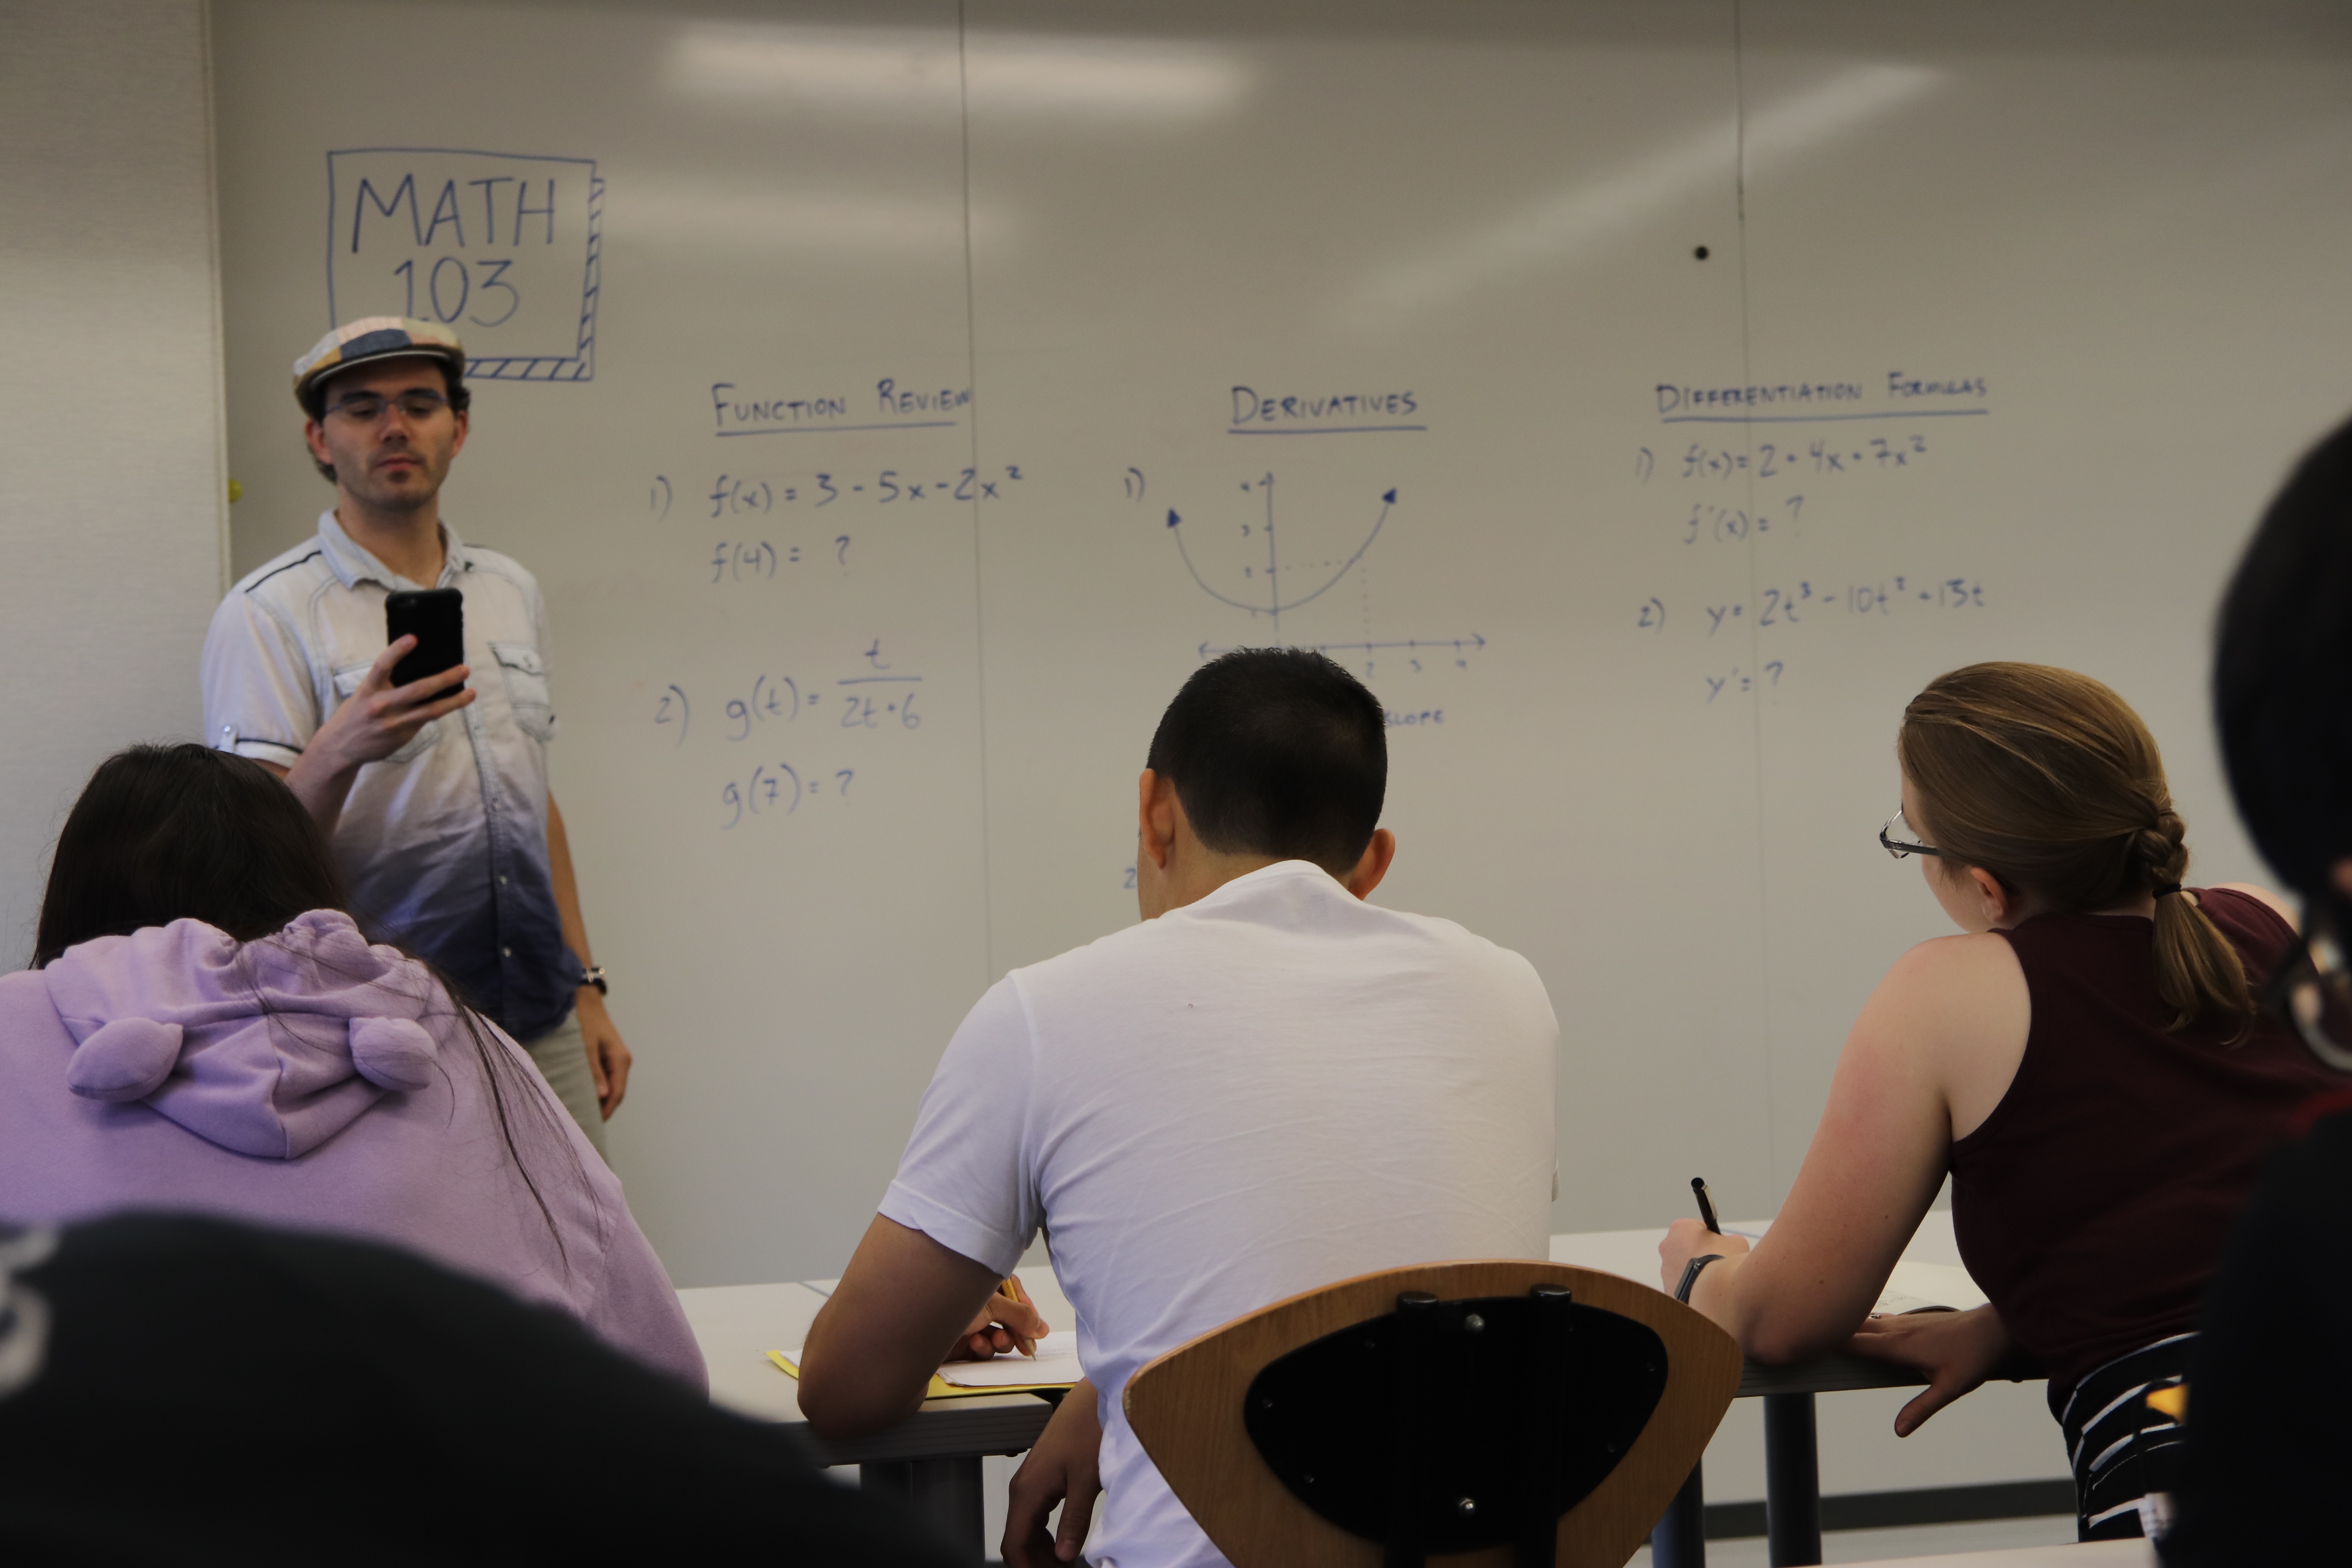 MATH
103
FUNCTION REVIEW
1) f(x) = 3 - 5x - 2x²
f(4) = ?
2) g(t) = t / (2t + 6)
g(7) = ?
DERIVATIVES
1)
4
3
2
1
2 3 4
SLOPE
2
DIFFERENTIATION FORMULAS
1) f(x) = 2 + 4x + 7x²
f'(x) = ?
2) y = 2t³ - 10t² + 13t
y' = ?